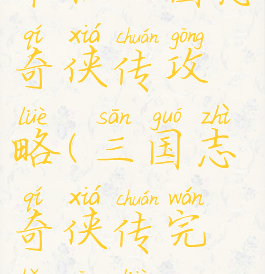 qí xiá chuán gōng
奇侠传攻
lüè sān guó zhì
略(三国志
qí xiá chuán wán
奇侠传完